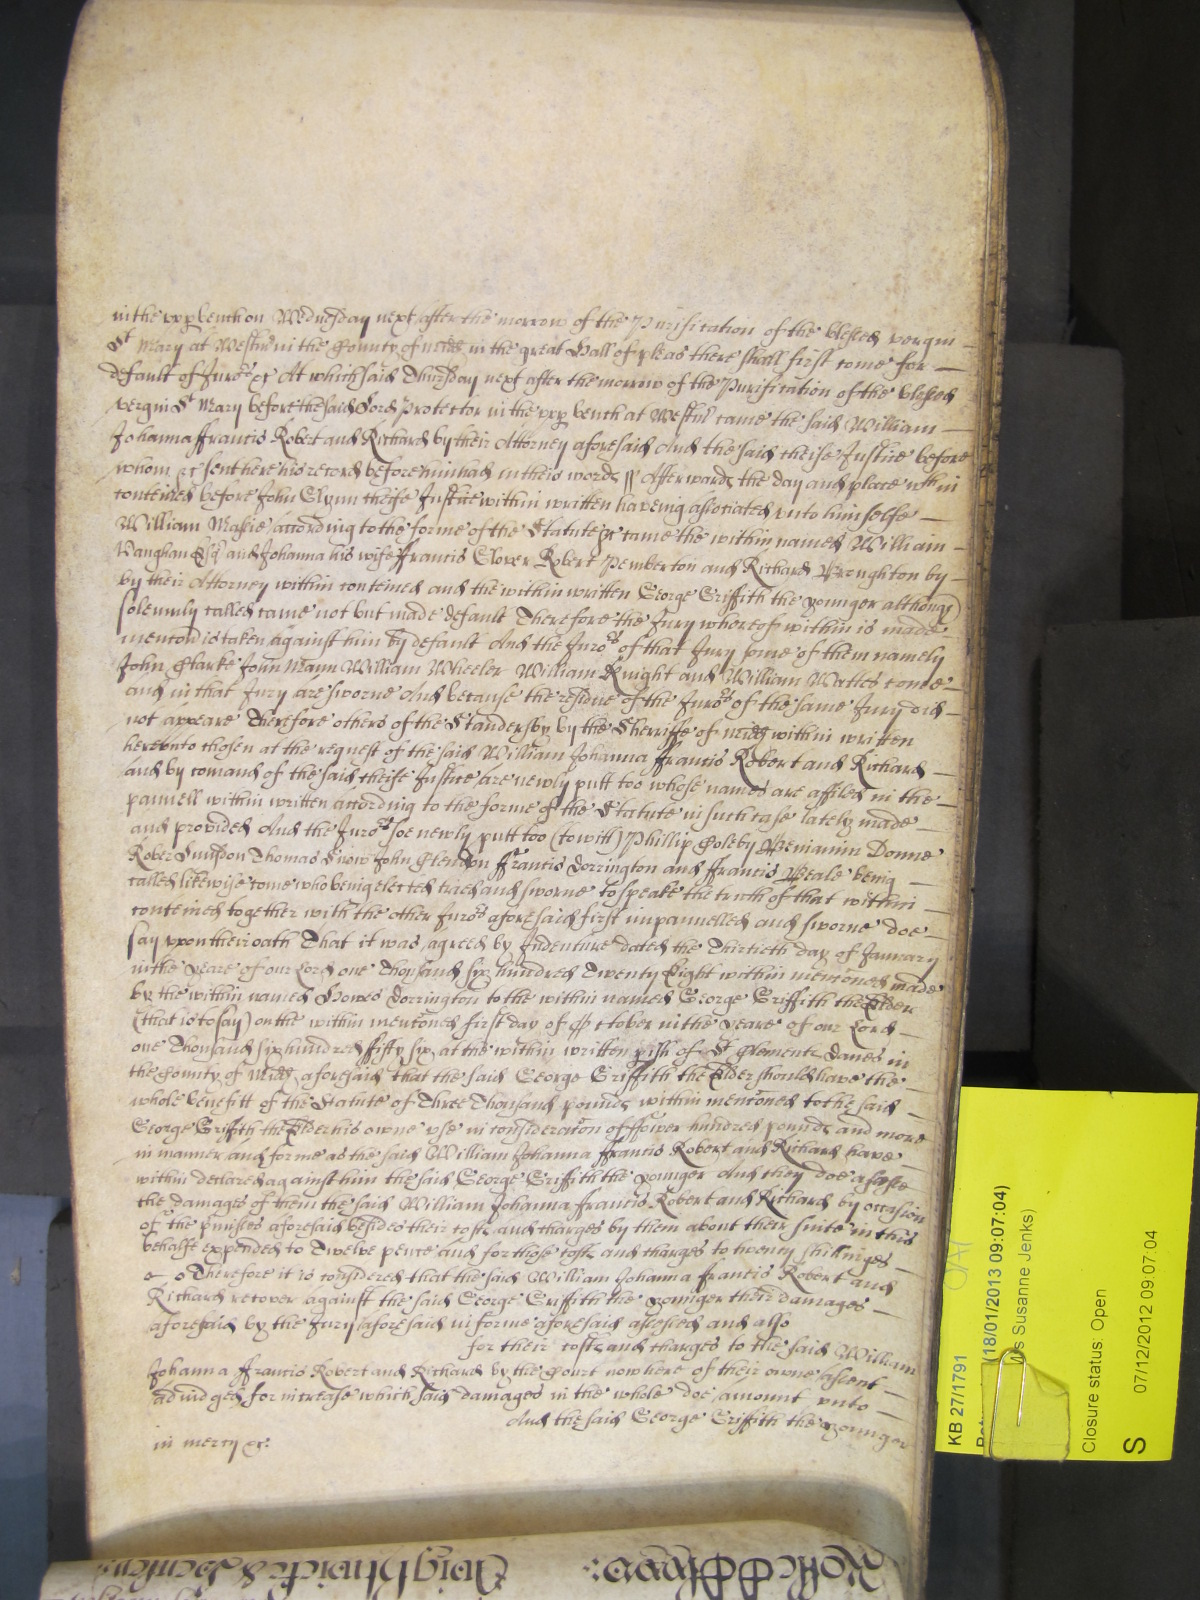 in the upp bench on Wednesday next after the morrow of the Purification of the blessed vergin —
St Mary at Westm in the County of Midd in the great Hall of pleas there shall first come for —
default of Juro:rs &c At which said Thursday next after the morrow of the Purification of the blessed
vergin St Mary before the said Lord Protector in the upp bench at Westm came the said William —
Johanna Francis Robert and Richard by their Attorney aforesaid And the said cheife Justice before
whom &c sent here his record before him had in theis words ss Afterwards the day and place wthin
conteined before John Glynn cheife Justice within written haveing associated unto himselfe —
William Massie according to the forme of the Statute &c came the within named William —
Vaughan Esq and Johanna his wife Francis Glover Robert Pemberton and Richard Broughton by —
by their Attorney within conteined and the within written George Griffith the younger although
solemnly called came not but made default Therefore the Jury whereof within is made
mencon is taken against him by default And the Juro:rs of that Jury some of them namely
John Clarke John Mann William Wheeler William Knight and William Mattes come —
and in that Jury are sworne And because the residue of the Juro:rs of the same Jury did —
not appeare Therefore others of the Standersby by the Sherriffe of Midd within written
hereunto chosen at the request of the said William Johanna Francis Robert and Richard —
and by comand of the said cheife Justice are newly putt too whose names are affiled in the —
pannell within written according to the forme of the Statute in such case lately made —
and provided And the Juro:rs soe newly putt too (to witt) Phillip Coleby Beniamin Donne
Robert Simpson Thomas Snow John Clendon Francis Dorrington and Francis Beale being —
called likewise come who being elected tried and sworne to speake the truth of that within —
conteined together with the other Juro:rs aforesaid first impannelled and sworne doe —
say upon their oath That it was agreed by Indenture dated the Thirtieth day of January
in the yeare of our Lord one Thousand six hundred Twenty Eight within menconed made
by the within named Howes Dorrington to the within named George Griffith the Elder
(that is to say) on the within menconed first day of October in the yeare of our Lord —
one Thousand six hundred fifty six at the within written pish of St Clements Danes in
the County of Midd aforesaid That the said George Griffith the Elder should have the —
whole benefitt of the Statute of Three Thousand pounds within menconed to the said —
George Griffith the Elder his owne use in consideracon of Fower hundred pounds and more
in manner and forme as the said William Johanna Francis Robert and Richard have —
within declared against him the said George Griffith the younger And they doe assesse
the damages of them the said William Johanna Francis Robert and Richard by occasion
of the pmisses aforesaid besides their costs and charges by them about their suite in this
behalfe expended to Twelve pence and for those costs and charges to twenty shillinges —
Therefore it is considered that the said William Johanna Francis Robert and
Richard recover against the said George Griffith the younger their damages —
aforesaid by the Jury aforesaid in forme aforesaid assessed and also
for their costs and charges to the said William
Johanna Francis Robert and Richard by the Court now here of their owne assent —
adiudged for increase which said damages in the whole doe amount unto —
And the said George Griffith the younger
in mercy &c.
KB 27/1791
(18/01/2013 09:07:04)
s Susanne Jenks)
Closure status: Open
S
07/12/2012 09:07:04